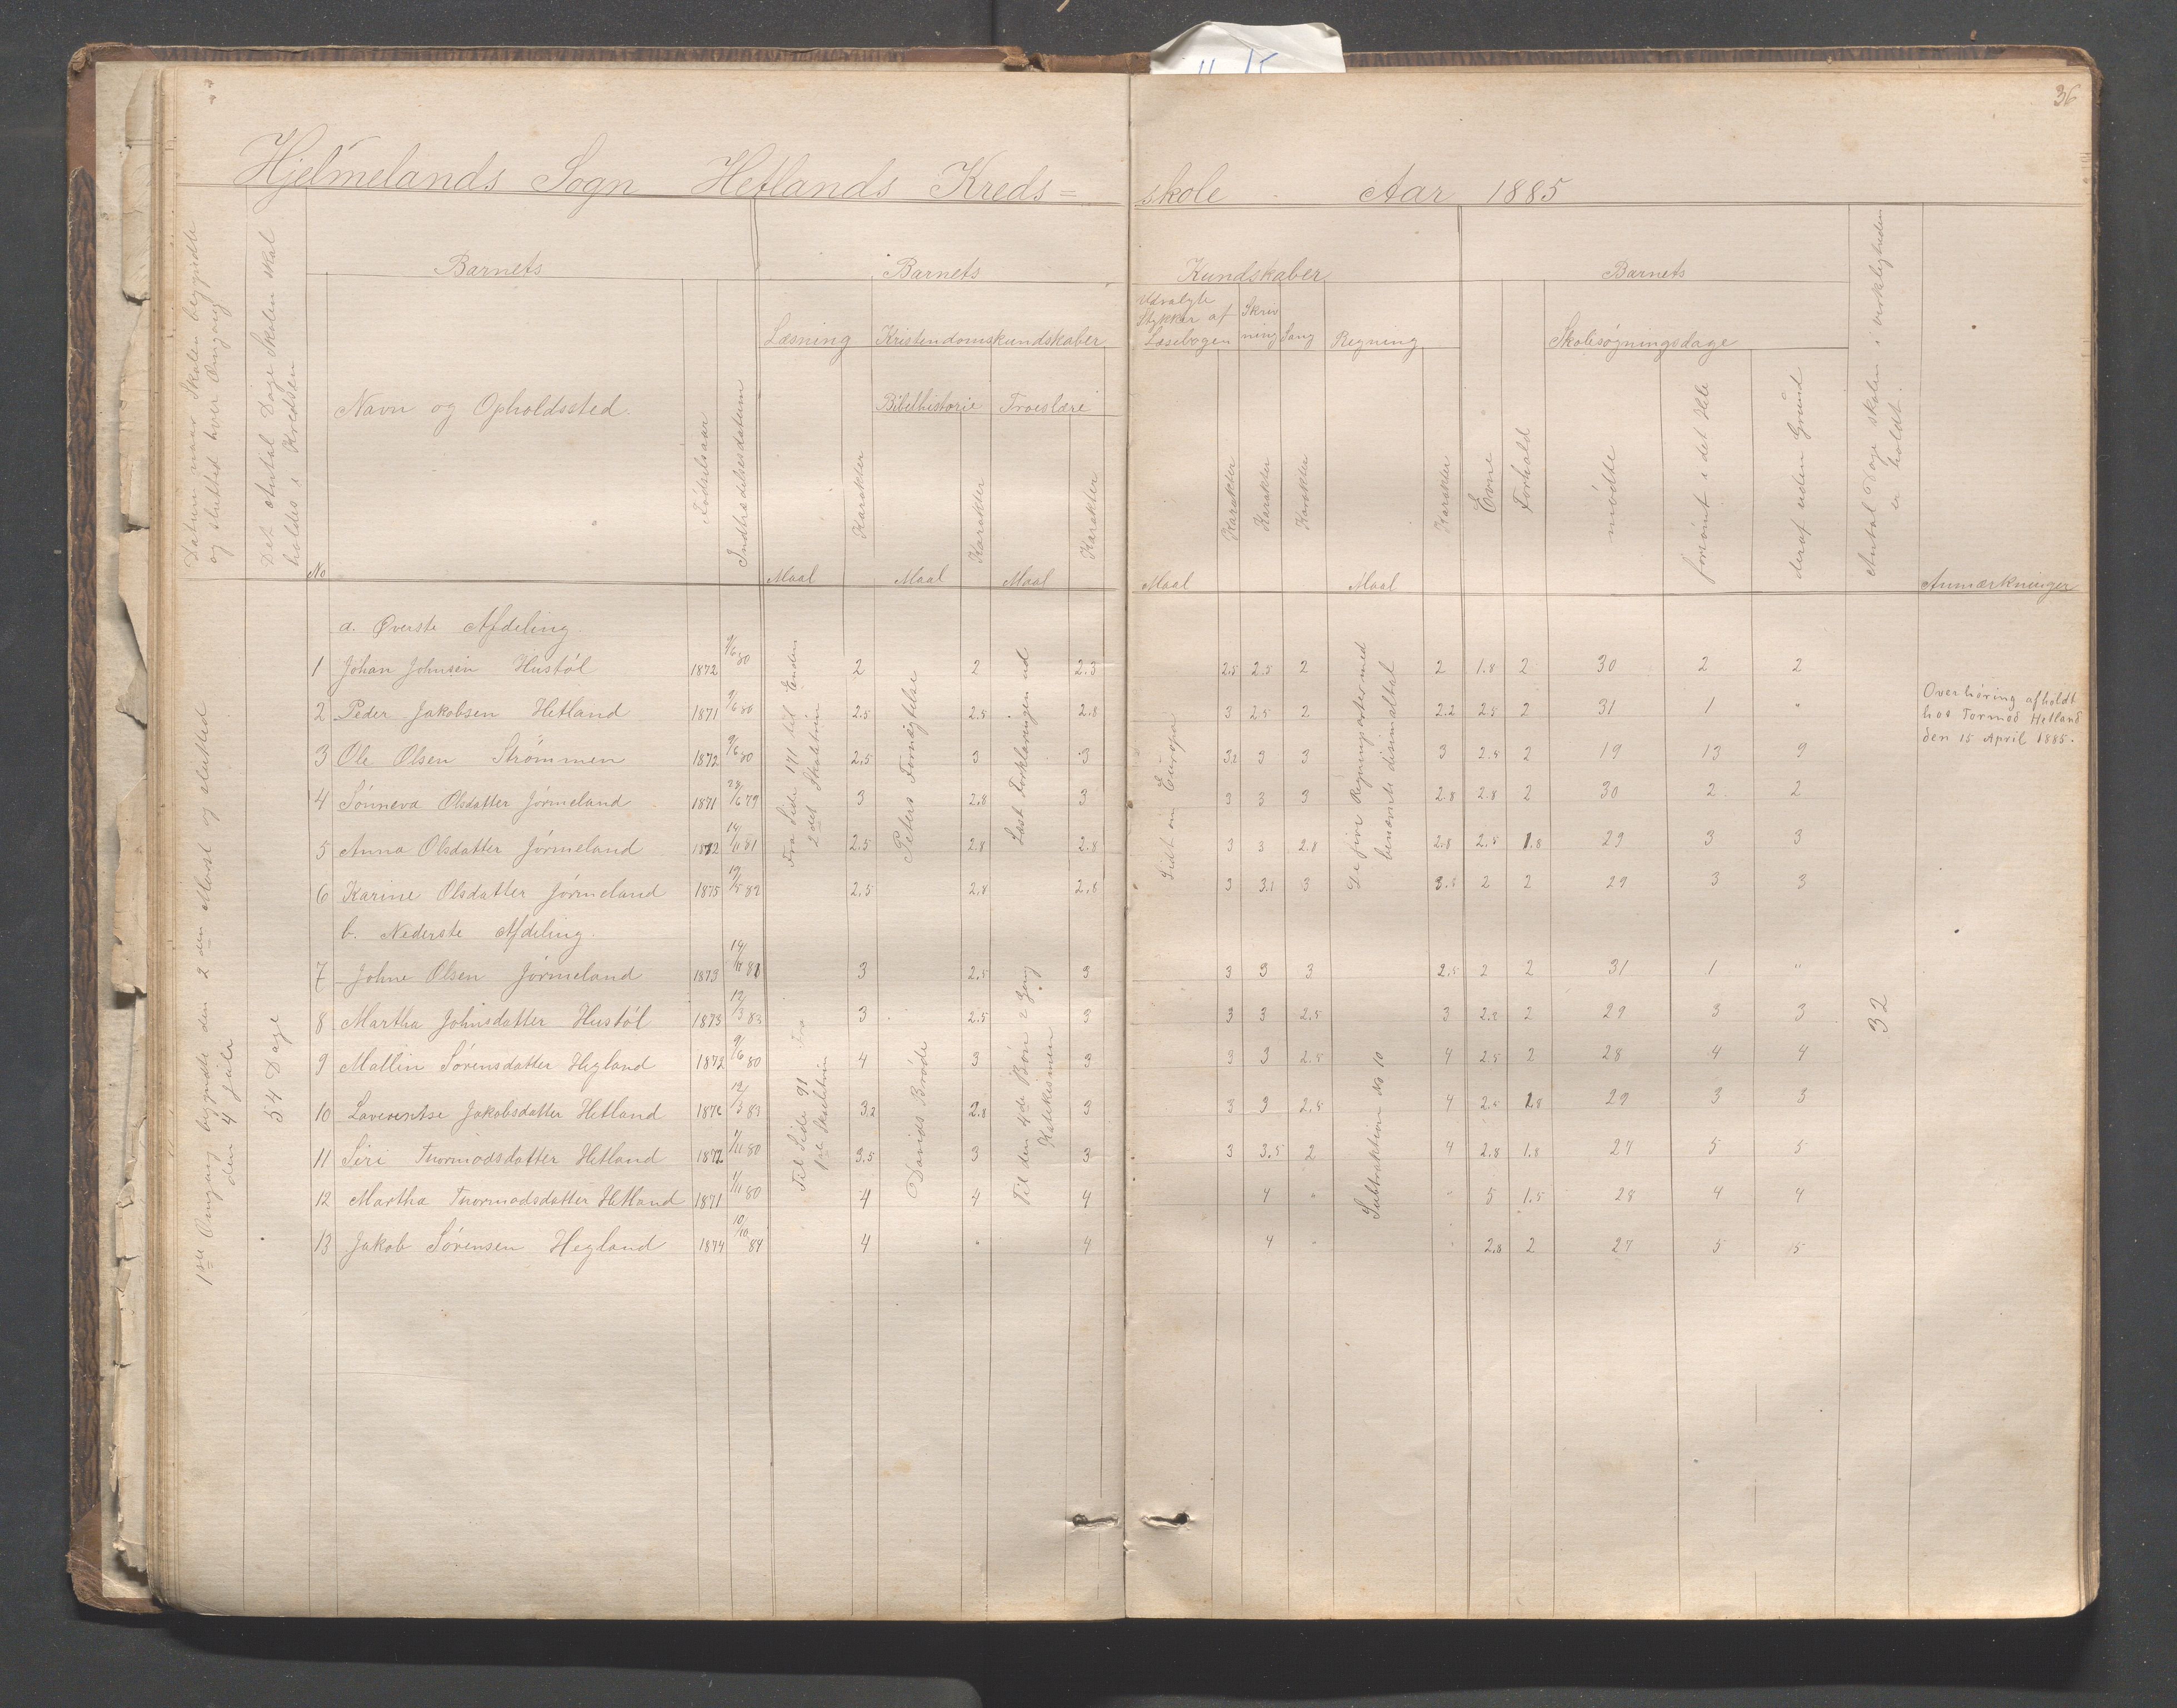 36
Hjelmelands Sogn Hetlands Kreds=
skole Aar 1885
Datum naar Skolen begyndte
og slutted hver Omgang
Det Antal Dage Skolen skal
holdes i Kredsen
Barnets
Barnets
Kundskaber
Barnets
No
Navn og Opholdssted.
Fødselsaar
Indtrædelsesdatum
Læsning
Kristendomskundskaber
Bibelhistorie
Troeslære
Maal
Karakter
Maal
Karakter
Maal
Karakter
Udvalgte
Stykker af
Læsebogen
Skriv
ning
Sang
Regning
Maal
Karakter
Karakter
Karakter
Maal
Karakter
Evne
Forhold
Skolesøgningsdage
mødte
forsømt i det Hele
deraf uden Grund
Antal Dage skolen i virkeligheden
er holdt.
Anmærkninger
1ste Omgang begyndte den 2den Marst og slutted
den 4 Jula
54 Dage
a. Øverste Afdeling.
1 Johan Johnsen Hustøl 1872 9/6 80 2 2 2.3 2.5 2.5 2 2 1.8 2 30 2 2
2 Peder Jakobsen Hetland 1871 9/6 80 2.5 2.5 2.8 3 2.5 2 2.2 2.5 2 31 1 "
3 Ole Olsen Strømmen 1872 9/6 80 2.5 3 3 3.2 3 3 3 2.5 2 19 13 9
4 Sønneva Olsdatter Jørmeland 1871 24/6 79 3 2.8 3 3 3 3 2.8 2.8 2 30 2 2
5 Anna Olsdatter Jørmeland 1872 14/11 81 2.5 2.8 2.8 3 3 2.8 2.8 2.5 1.8 29 3 3
6 Karine Olsdatter Jørmeland 1875 2.5 2.8 2.8 3 3.1 3 2 2 29 3 3
Fra Side 171 til Enden
2det Skoletrin
Peters Fornægtelse
Læst Forklaringen ud
Lidt om Europa
De fire Regningsarter med
benævnte
b. Nederste Afdeling.
7 Johne Olsen Jørmeland 1873 14/11 81 3 2.5 3 3 3 3 2.5 2 2 31 1 "
8 Martha Johnsdatter Hustøl 1873 12/3 83 3 2.5 3 3 3 2.5 3 2.2 2 29 3 3
9 Mallin Sørensdatter Hegland 1872 9/6 80 4 3 3 3 3 2.5 4 2.5 2 28 4 4
10 Jakobsdatter Hetland 12/3 83 3.2 2.8 3 3 3 2.5 4 2.5 1.8 29 3 3
11 Siri Tnormodsdatter Hetland 1872 1/11 80 3.5 3 3 3 3.5 2 4 2.8 1.8 27 5 5
12 Martha Tnormodsdatter Hetland 1871 1/11 80 4 4 4 4 " " 5 1.5 28 4 4
13 Jakob Sørensen Hegland 1874 10/10 84 4 " 4 4 " " 2.8 2 27 5 5
Til Side 91 Fra
1ste Skoletrin
Davids Brøde
Til den 4de Bøn 2 Gang
Katekismen
Subtraktion No 10
32
Overhøring afholdt
hos Tormod Hetland
den 15 April 1885.